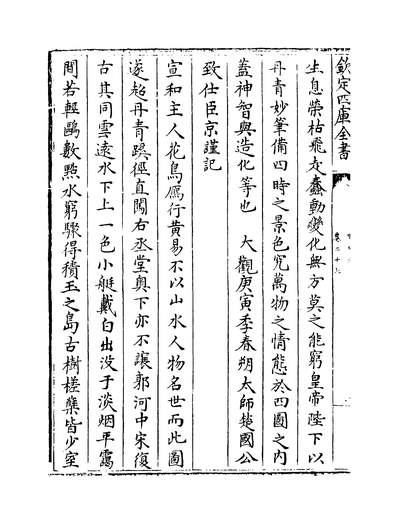 欽定四庫全書
生息榮枯飛走蠢動變化無方莫之能窮皇帝陛下以
丹青妙筆備四時之景色究萬物之情態於四圖之内
蓋神智與造化等也　大觀庚寅季春朔太師楚國公
致仕臣京謹記
宣和主人花鳥鴈行黄易不以山水人物名世而此圖
遂超丹青蹊徑直闖右丞堂奥下亦不讓郭河中宋復
古其同雲逺水下上一色小艇戴白出没于淡烟平靄
間若輕鷗數㸃水窮驟得積玉之島古樹槎蘖皆少室